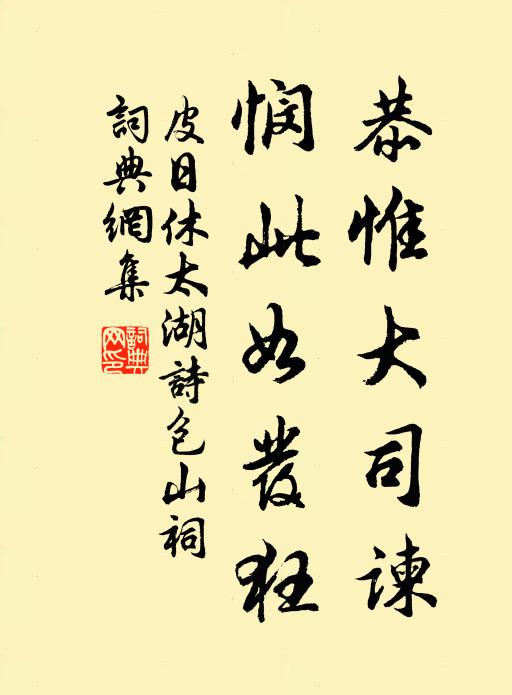 恭惟大司諫
憫此如發狂
皮日休太湖詩包山祠
詞典網集
詞典網印